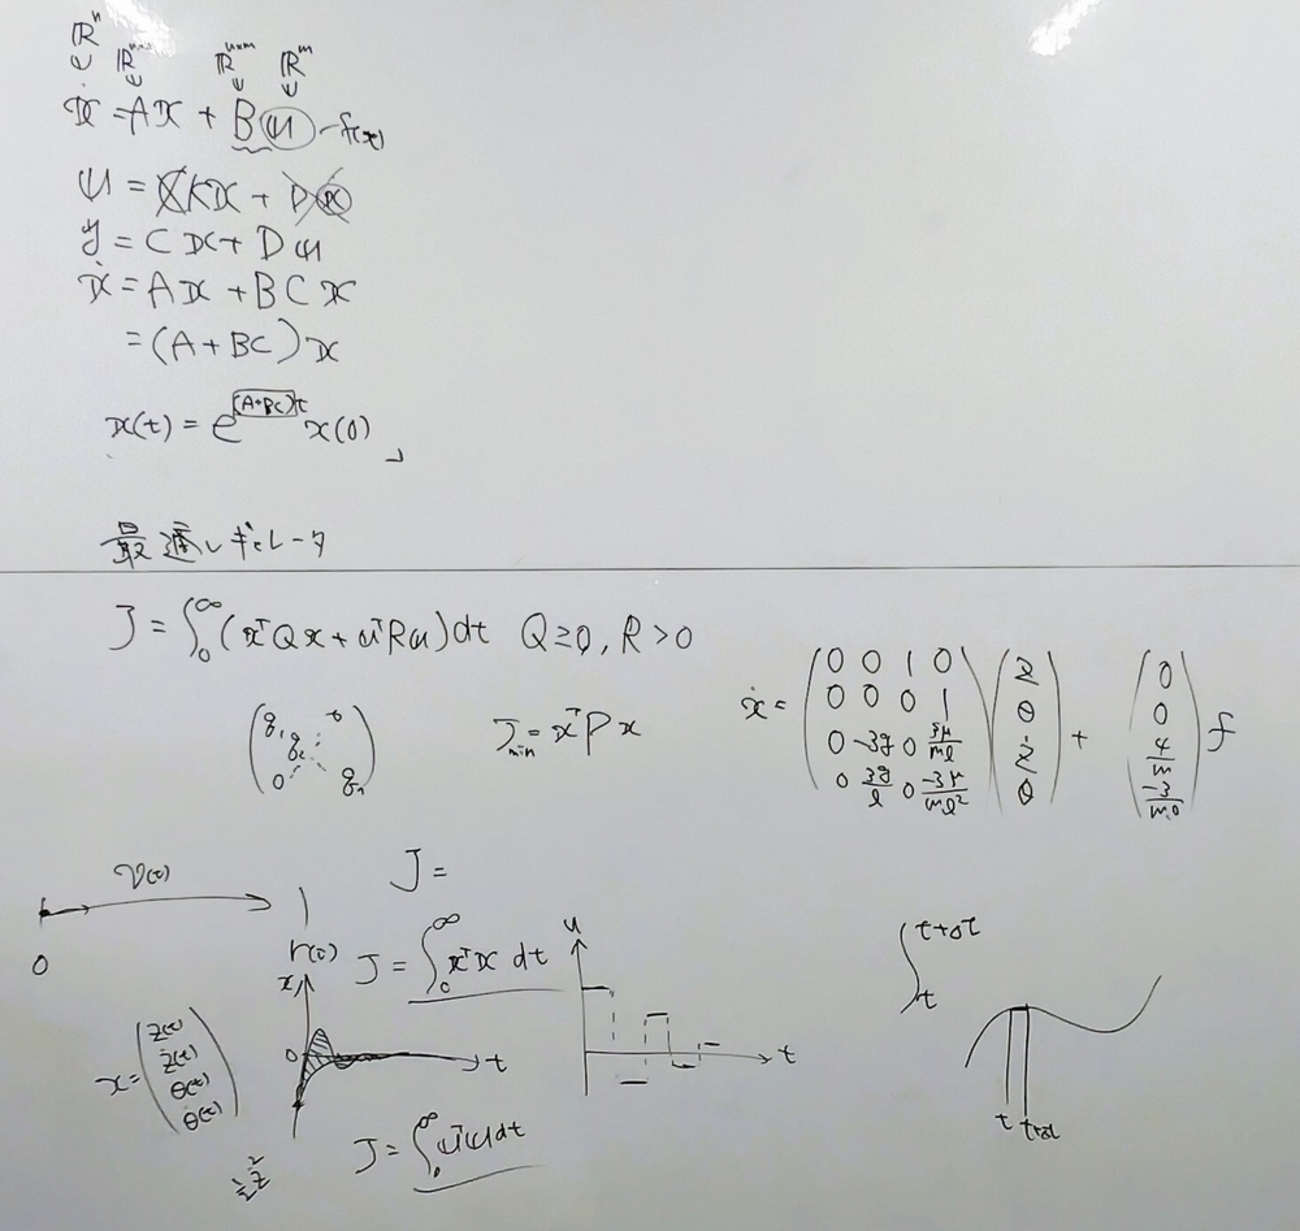 ℝⁿ ℝⁿˣⁿ ℝⁿˣᵐ ℝᵐ
ẋ = Ax + Bu - f(x)
u = Kx +
y = Cx + Du
ẋ = Ax + BCx
= (A + BC)x
x(t) = e^{(A+BC)t} x(0)
最適レギュレータ
J = ∫₀^∞ (xᵀQx + uᵀRu)dt Q≥0, R>0
(q₁ q₂ ⋱ qₙ 0 0)
J_min = xᵀPx
ẋ = (0 0 1 0
0 0 0 1
0 -3g 0 3μ/ml
0 3g/l 0 -3μ/ml²) (z θ ż θ) + (0 0 4/m -3/ml) f
V(t)
0
r(t)
J =
J = ∫₀^∞ xᵀx dt
x
0
t
u
t
x = (z(t)
ż(t)
θ(t)
θ̇(t))
J = ∫₀^∞ uᵀu dt
½ż²
∫ₜ^{t+Δt}
t t+Δt